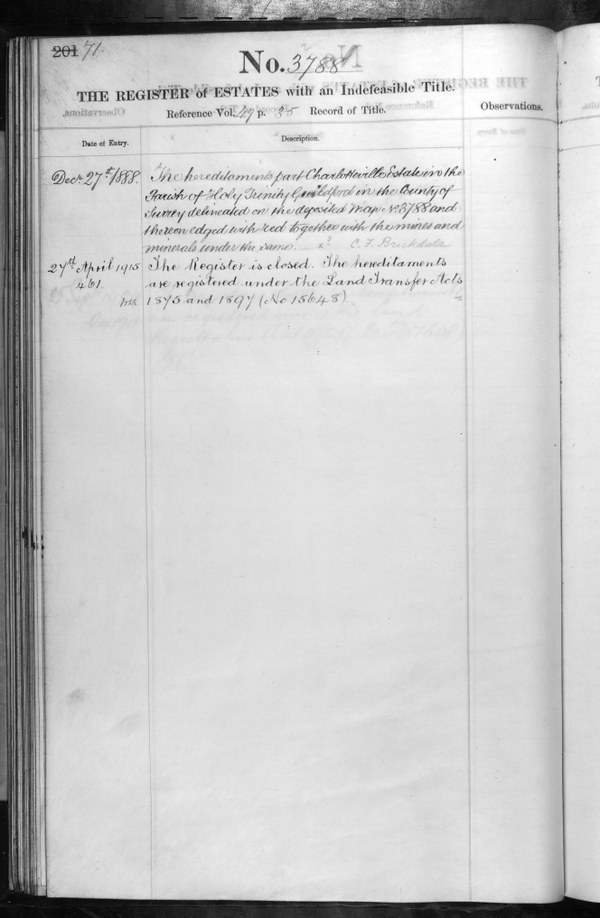 201 71.
No. 3788
THE REGISTER of ESTATES with an Indefeasible Title.
Reference Vol. 49 p. 35 Record of Title.
Observations.
Date of Entry.
Description.
Decr. 27th 1888.
The hereditaments part Charlotteville Estate in the
Parish of Holy Trinity Guildford in the County of
Surrey delineated on the deposited Map No. 3788 and
thereon edged with red together with the mines and
minerals under the same. C. F. Brickdale
27th April 1915
461.
The Register is closed. The hereditaments
are registered under the Land Transfer Acts
1875 and 1897 (No 15648)